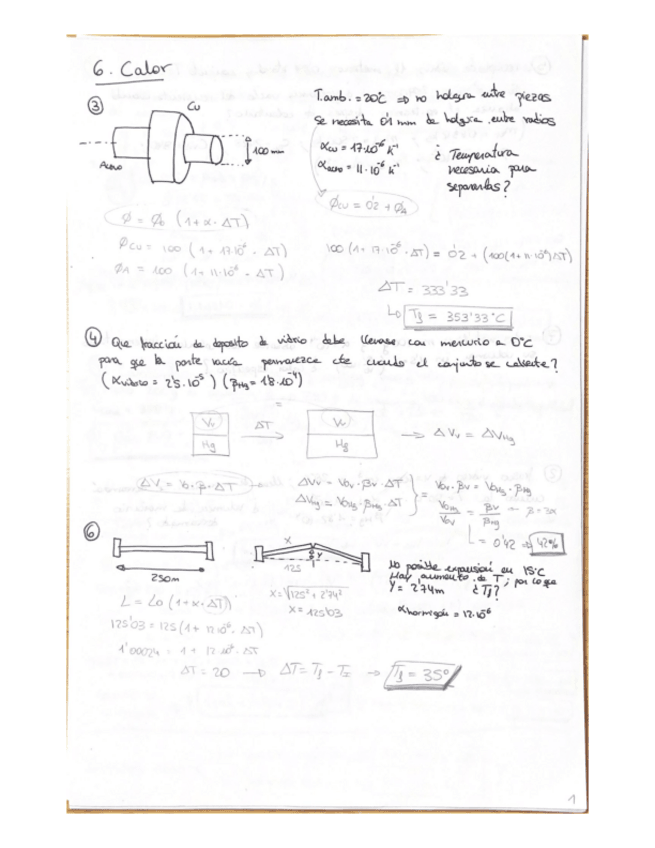 6. Calor
③
Cu
Acero
100 mm
T.amb. = 20°C ⇒ no holgura entre piezas
Se necesita 0'1 mm de holgura entre radios
αcu = 17·10⁻⁶ k⁻¹
αacero = 11·10⁻⁶ k⁻¹
¿ Temperatura
necesaria para
separarlas?
Øcu = 0'2 + ØA
Ø = Ø₀ (1+α·ΔT)
Øcu = 100 (1+17·10⁻⁶ · ΔT)
ØA = 100 (1+11·10⁻⁶ · ΔT)
100 (1+17·10⁻⁶ · ΔT) = 0'2 + (100(1+11·10⁻⁶)ΔT)
ΔT = 333'33
↳ Tf = 353'33°C
④ Que fracción de deposito de vidrio debe llenarse con mercurio a 0°C
para que la parte vacía permanezca cte cuando el conjunto se caliente?
(αvidrio = 2'5·10⁻⁵) (βHg = 1'8·10⁻⁴)
=
Vv
Hg
ΔT
Vv
Hg
→ ΔVv = ΔVHg
ΔV = V₀·β·ΔT
ΔVv = V₀v·βv·ΔT
ΔVHg = V₀Hg·βHg·ΔT
= V₀v·βv = V₀Hg·βHg
V₀Hg/V₀v = βv/βHg → β=3α
= 0'42 ⇒ 42%
⑥
250m
x
y
125
No posible expansión en 15°C
Hay aumento de T, por lo que
y = 2'74m ¿Tf?
αhormigón = 12·10⁻⁶
x = √125² + 2'74²
x = 125'03
L = L₀ (1+α·ΔT)
125'03 = 125 (1+12·10⁻⁶·ΔT)
1'00024 = 1 + 12·10⁻⁶·ΔT
ΔT = 20 → ΔT = Tf - T₀ → Tf = 35°
1